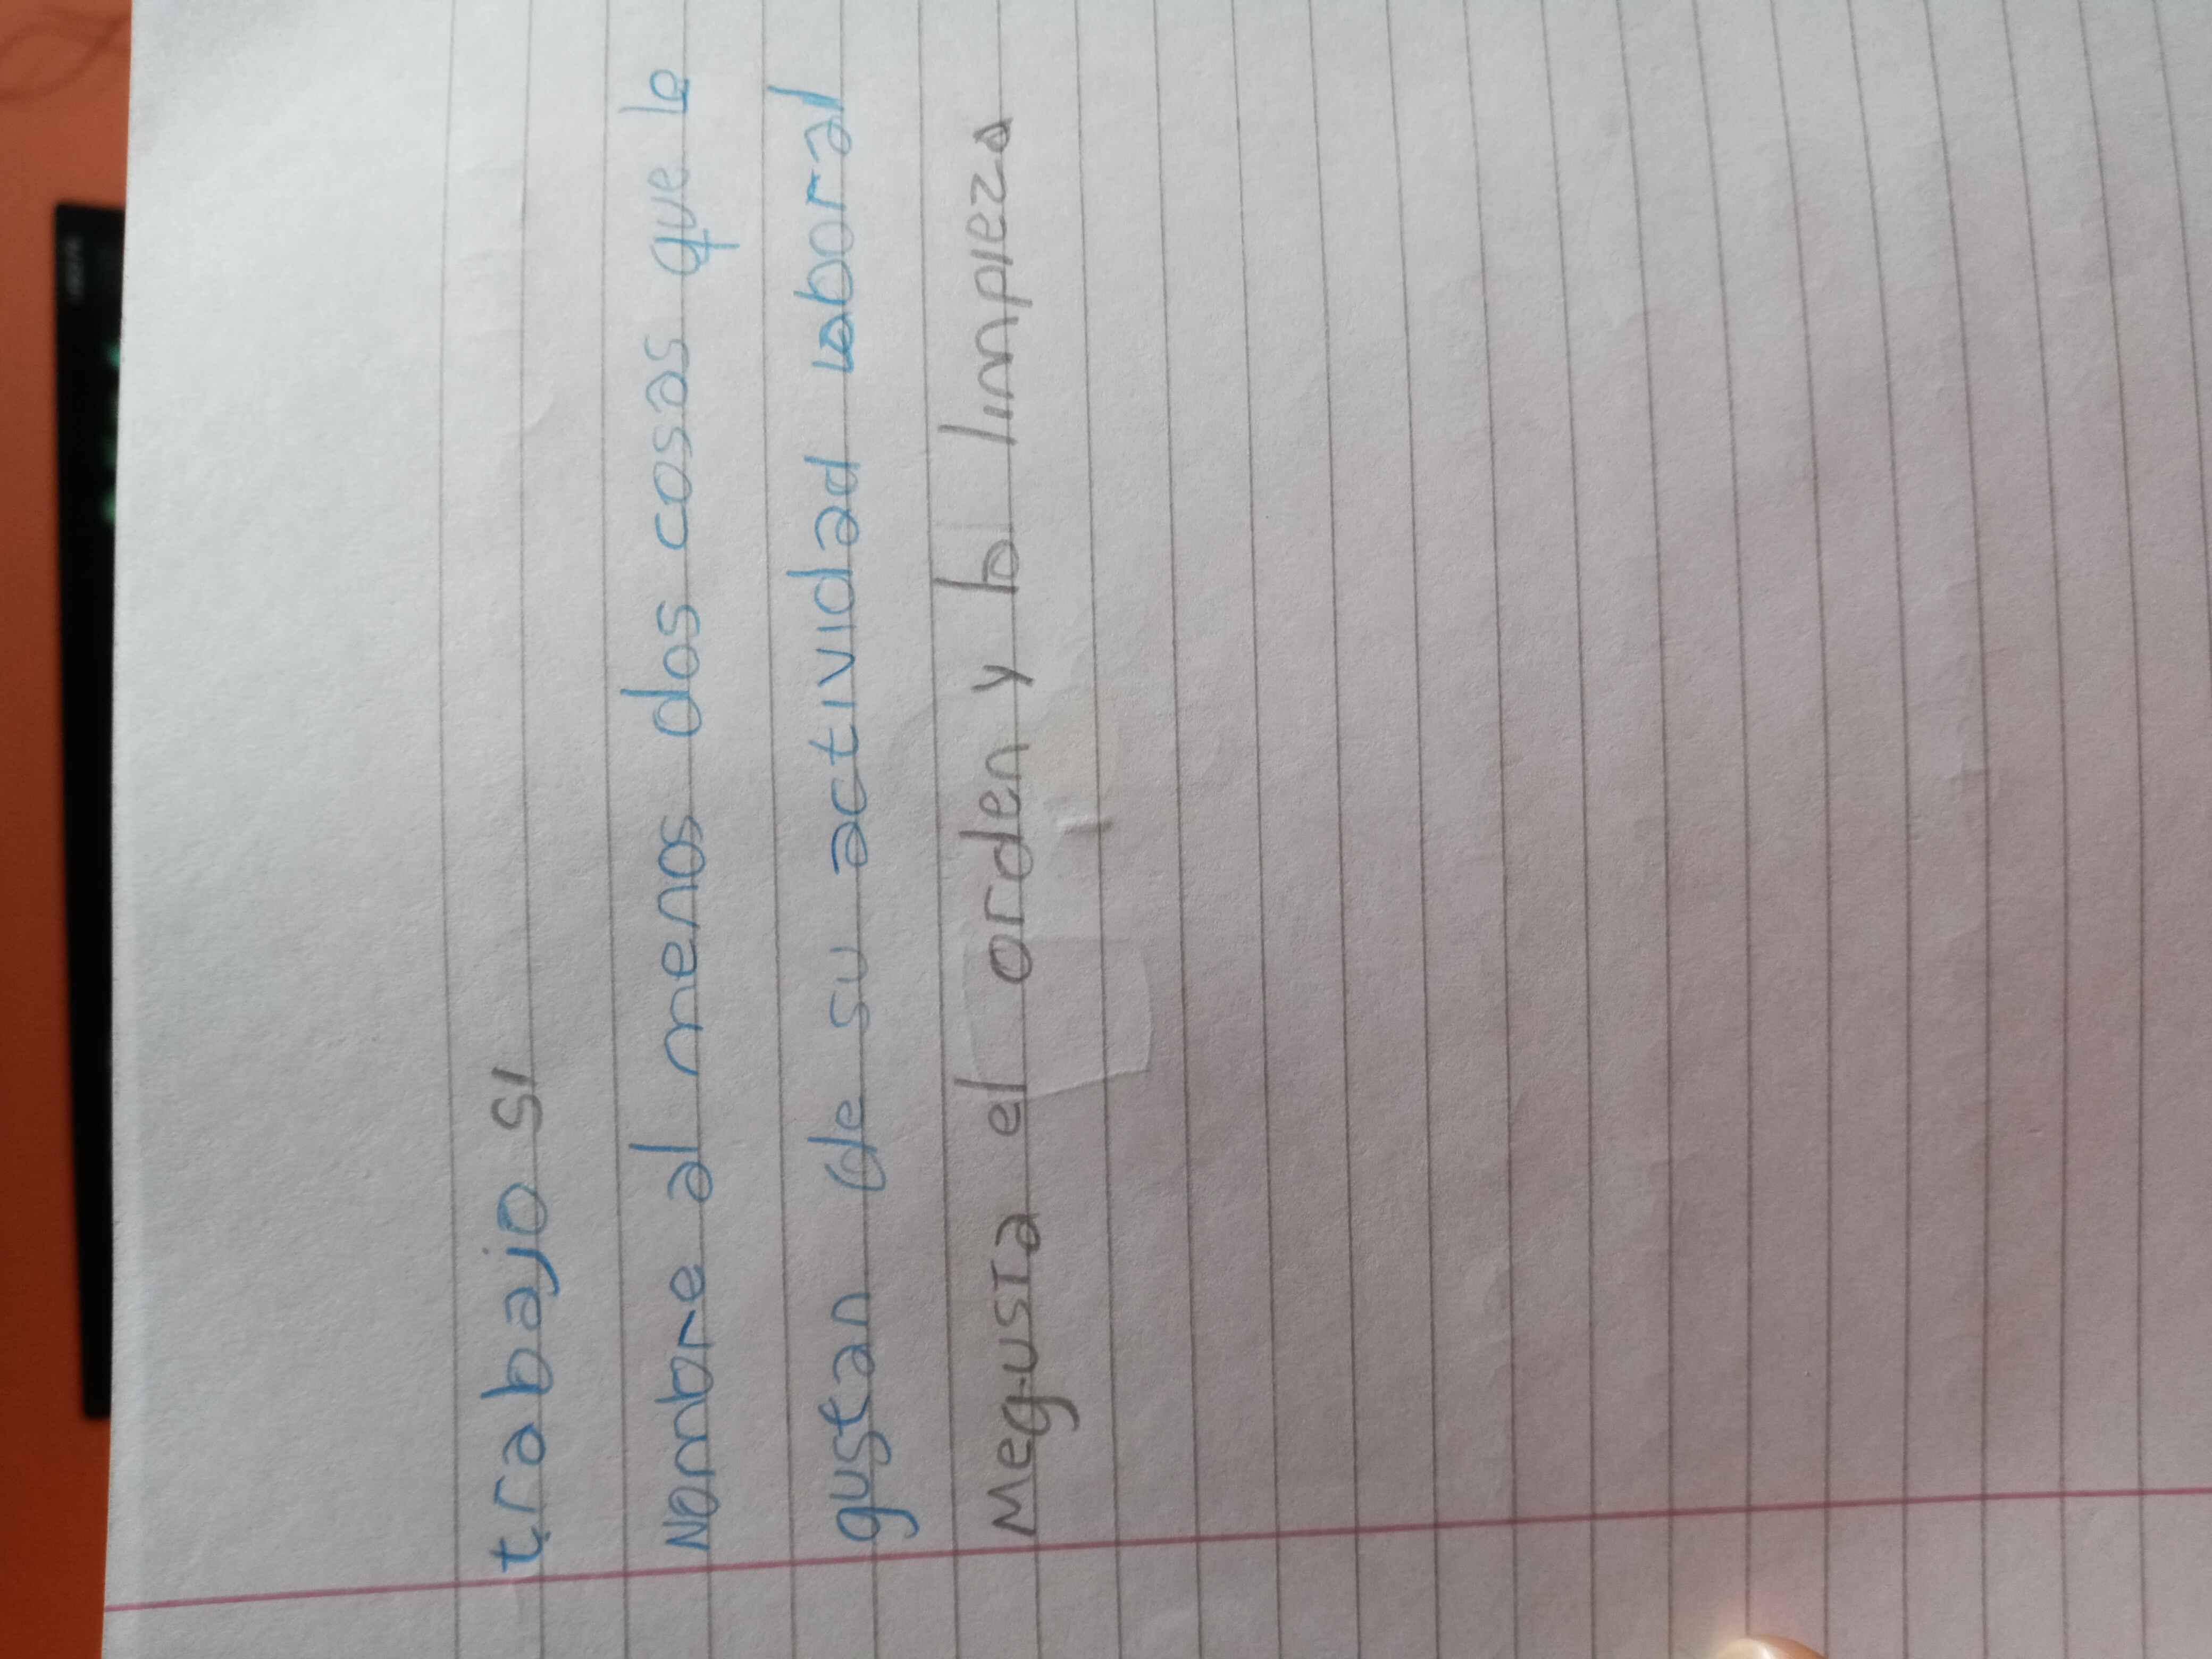 trabajo si
Nombre al menos dos cosas que le
gustan de su actividad laboral
Megusta el orden y la limpieza